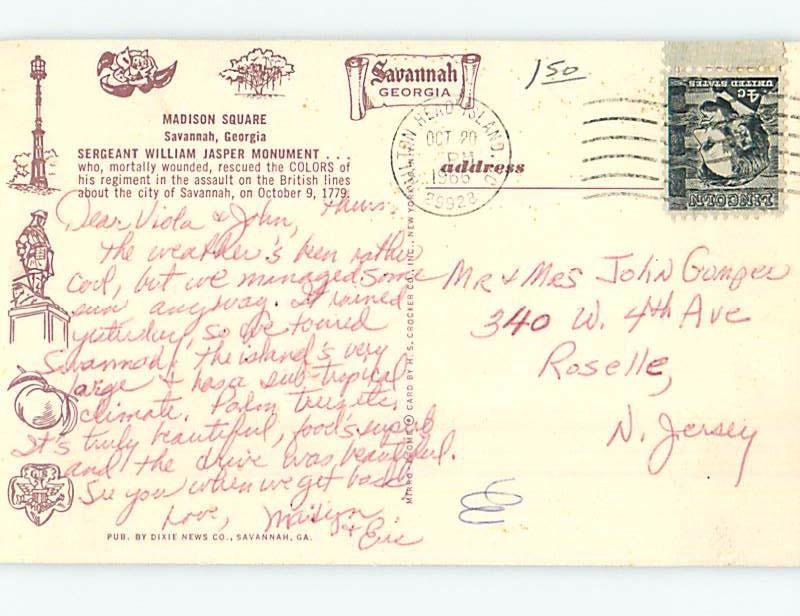 MADISON SQUARE
Savannah, Georgia
SERGEANT WILLIAM JASPER MONUMENT . . .
who, mortally wounded, rescued the COLORS of
his regiment in the assault on the British lines
about the city of Savannah, on October 9, 1779.
Savannah
GEORGIA
1 50
HILTON HEAD ISLAND, SC
OCT 20
PM
1966
29928
address
4c
UNITED STATES
LINCOLN
Thurs.
Dear Viola & John,
The weather's been rather
cool, but we managed some
sun anyway. It rained
yesterday, so we toured
Savannah. The island's very
large & has a sub-tropical
climate. Palm trees etc.
It's truly beautiful, food's superb
and the drive was beautiful.
See you when we get back
Love, Marilyn
& Eric
Mr & Mrs John Gomper
340 W. 4th Ave
Roselle,
N. Jersey
MIRRO-KROME ® CARD BY H. S. CROCKER CO., INC., NEW YORK
PUB. BY DIXIE NEWS CO., SAVANNAH, GA.